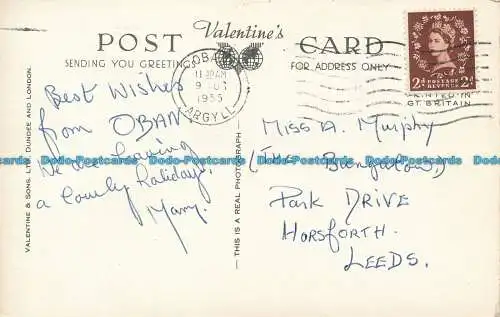 POST Valentine's CARD
SENDING YOU GREETINGS FOR ADDRESS ONLY
OBAN
11 30 AM
1955
ARGYLL
2D POSTAGE REVENUE 2D
PRINTED IN
GT. BRITAIN
Best Wishes
from OBAN
We are having
a lovely holiday.
Mary.
VALENTINE & SONS, LTD., DUNDEE AND LONDON.
—THIS IS A REAL PHOTOGRAPH—
Miss A. Murphy
(THE Bungalow)
Park DRIVE
HORSFORTH
LEEDS.
Dodo-Postcards Dodo-Postcards Dodo-Postcards Dodo-Postcards Dodo-Postcards